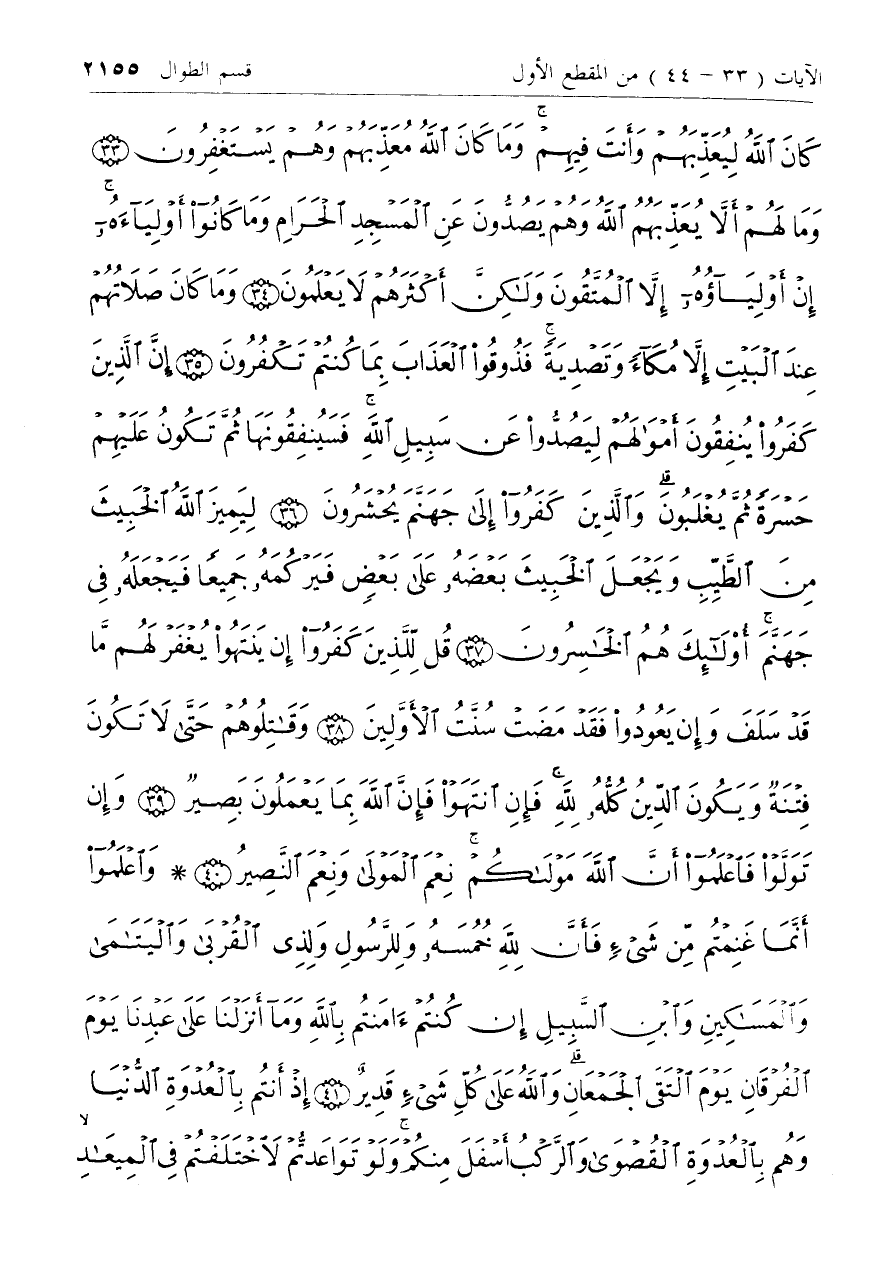 الآيات ( ٣٣ - ٤٤ ) من المقطع الأول قسم الطوال ٢١٥٥
كَانَ ٱللَّهُ لِيُعَذِّبَهُمْ وَأَنتَ فِيهِمْ ۚ وَمَا كَانَ ٱللَّهُ مُعَذِّبَهُمْ وَهُمْ يَسْتَغْفِرُونَ ۝٣٣
وَمَا لَهُمْ أَلَّا يُعَذِّبَهُمُ ٱللَّهُ وَهُمْ يَصُدُّونَ عَنِ ٱلْمَسْجِدِ ٱلْحَرَامِ وَمَا كَانُوٓا۟ أَوْلِيَآءَهُۥٓ ۚ
إِنْ أَوْلِيَآؤُهُۥٓ إِلَّا ٱلْمُتَّقُونَ وَلَٰكِنَّ أَكْثَرَهُمْ لَا يَعْلَمُونَ ۝٣٤ وَمَا كَانَ صَلَاتُهُمْ
عِندَ ٱلْبَيْتِ إِلَّا مُكَآءً وَتَصْدِيَةً ۚ فَذُوقُوا۟ ٱلْعَذَابَ بِمَا كُنتُمْ تَكْفُرُونَ ۝٣٥ إِنَّ ٱلَّذِينَ
كَفَرُوا۟ يُنفِقُونَ أَمْوَٰلَهُمْ لِيَصُدُّوا۟ عَن سَبِيلِ ٱللَّهِ ۚ فَسَيُنفِقُونَهَا ثُمَّ تَكُونُ عَلَيْهِمْ
حَسْرَةً ثُمَّ يُغْلَبُونَ ۗ وَٱلَّذِينَ كَفَرُوٓا۟ إِلَىٰ جَهَنَّمَ يُحْشَرُونَ ۝٣٦ لِيَمِيزَ ٱللَّهُ ٱلْخَبِيثَ
مِنَ ٱلطَّيِّبِ وَيَجْعَلَ ٱلْخَبِيثَ بَعْضَهُۥ عَلَىٰ بَعْضٍ فَيَرْكُمَهُۥ جَمِيعًا فَيَجْعَلَهُۥ فِى
جَهَنَّمَ ۚ أُو۟لَٰٓئِكَ هُمُ ٱلْخَٰسِرُونَ ۝٣٧ قُل لِّلَّذِينَ كَفَرُوٓا۟ إِن يَنتَهُوا۟ يُغْفَرْ لَهُم مَّا
قَدْ سَلَفَ وَإِن يَعُودُوا۟ فَقَدْ مَضَتْ سُنَّتُ ٱلْأَوَّلِينَ ۝٣٨ وَقَٰتِلُوهُمْ حَتَّىٰ لَا تَكُونَ
فِتْنَةٌ وَيَكُونَ ٱلدِّينُ كُلُّهُۥ لِلَّهِ ۚ فَإِنِ ٱنتَهَوْا۟ فَإِنَّ ٱللَّهَ بِمَا يَعْمَلُونَ بَصِيرٌ ۝٣٩ وَإِن
تَوَلَّوْا۟ فَٱعْلَمُوٓا۟ أَنَّ ٱللَّهَ مَوْلَىٰكُمْ ۚ نِعْمَ ٱلْمَوْلَىٰ وَنِعْمَ ٱلنَّصِيرُ ۝٤٠ * وَٱعْلَمُوٓا۟
أَنَّمَا غَنِمْتُم مِّن شَىْءٍ فَأَنَّ لِلَّهِ خُمُسَهُۥ وَلِلرَّسُولِ وَلِذِى ٱلْقُرْبَىٰ وَٱلْيَتَٰمَىٰ
وَٱلْمَسَٰكِينِ وَٱبْنِ ٱلسَّبِيلِ إِن كُنتُمْ ءَامَنتُم بِٱللَّهِ وَمَآ أَنزَلْنَا عَلَىٰ عَبْدِنَا يَوْمَ
ٱلْفُرْقَانِ يَوْمَ ٱلْتَقَى ٱلْجَمْعَانِ ۗ وَٱللَّهُ عَلَىٰ كُلِّ شَىْءٍ قَدِيرٌ ۝٤١ إِذْ أَنتُم بِٱلْعُدْوَةِ ٱلدُّنْيَا
وَهُم بِٱلْعُدْوَةِ ٱلْقُصْوَىٰ وَٱلرَّكْبُ أَسْفَلَ مِنكُمْ ۚ وَلَوْ تَوَاعَدتُّمْ لَٱخْتَلَفْتُمْ فِى ٱلْمِيعَٰدِ ۙ